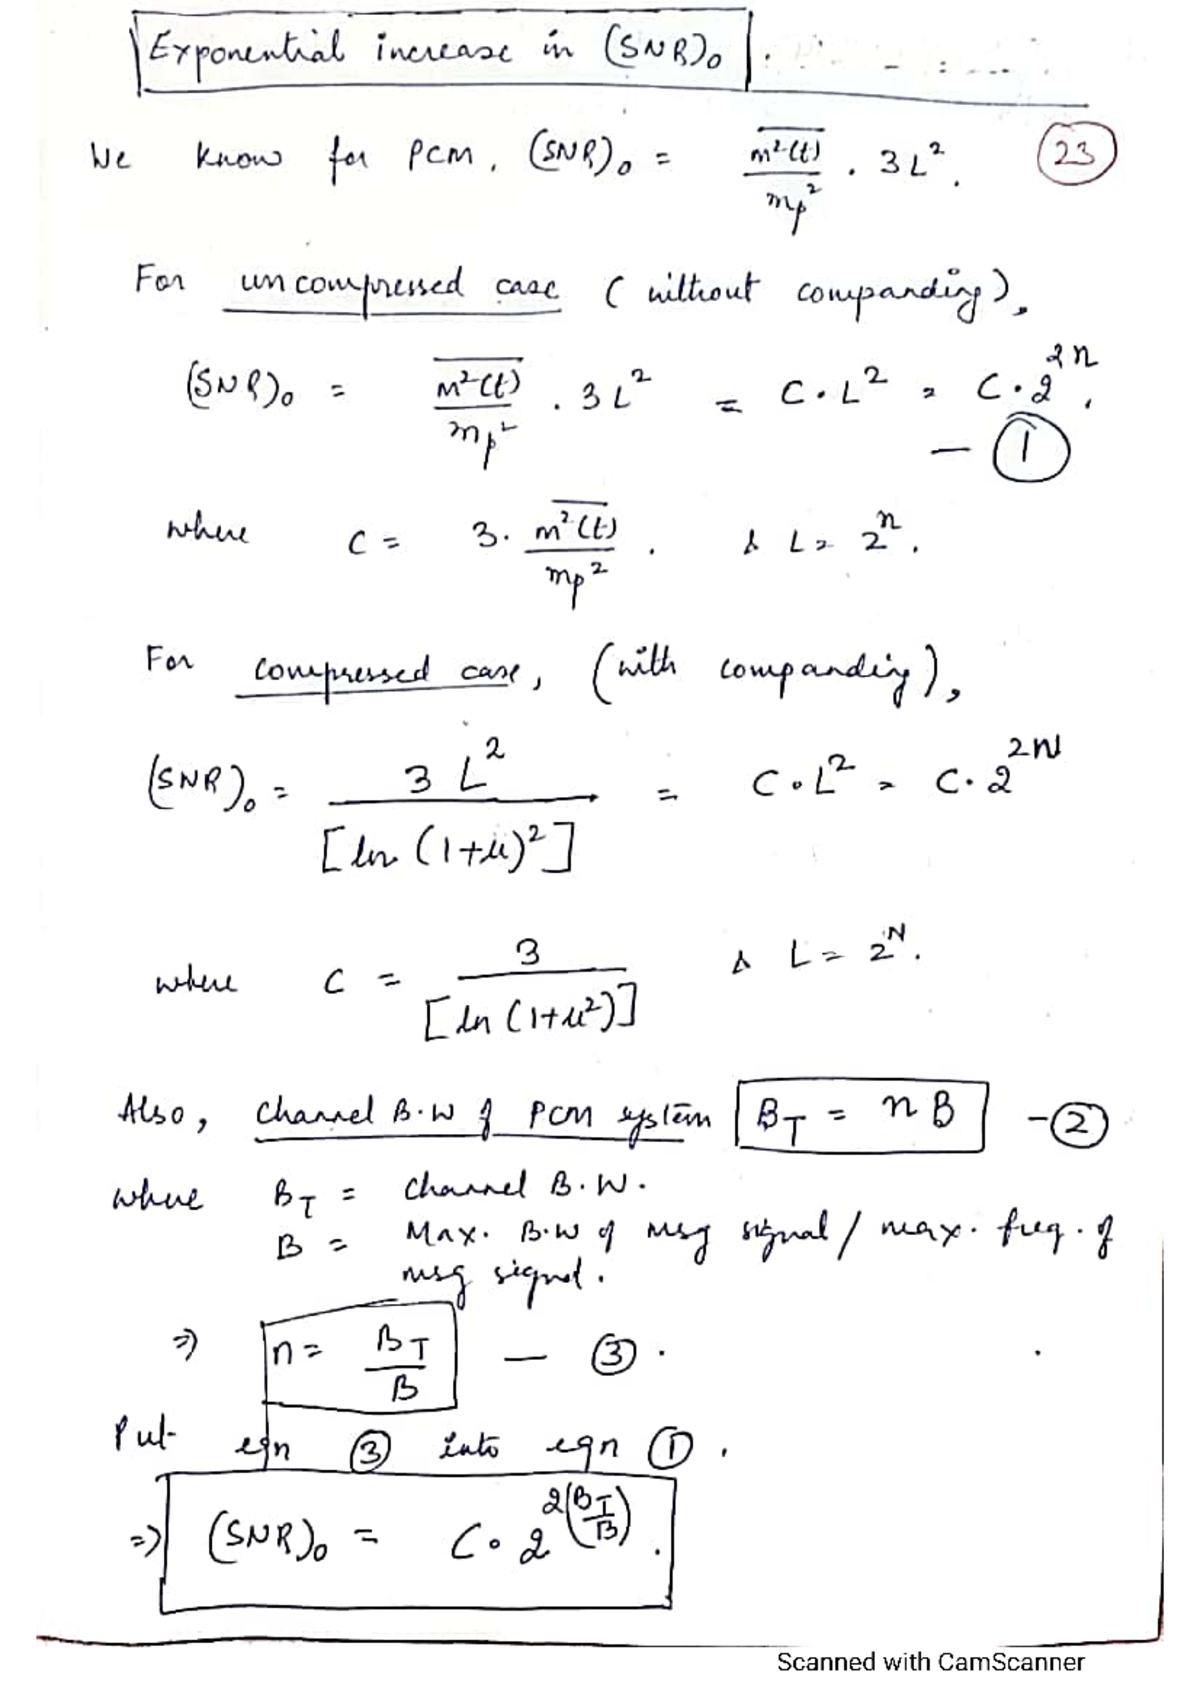 Exponential increase in (SNR)₀
We know for PCM, (SNR)₀ = m²(t)/mp² . 3L². 23
For uncompressed case (without companding),
(SNR)₀ = m²(t)/mp² . 3L² = C.L² = C.2²ⁿ. - 1
where C = 3. m²(t)/mp². & L = 2ⁿ.
For compressed case, (with companding),
(SNR)₀ = 3L²/[ln (1+μ)²] = C.L² = C.2^2N
where C = 3/[ln (1+μ²)] & L = 2^N.
Also, Channel B.W of PCM system B_T = nB - 2
where B_T = Channel B.W.
B = Max. B.W of msg signal / max. freq. of
msg signal.
=) n = B_T/B - 3.
Put eqn 3 into eqn 1.
=) (SNR)₀ = C.2^2(B_T/B).
Scanned with CamScanner